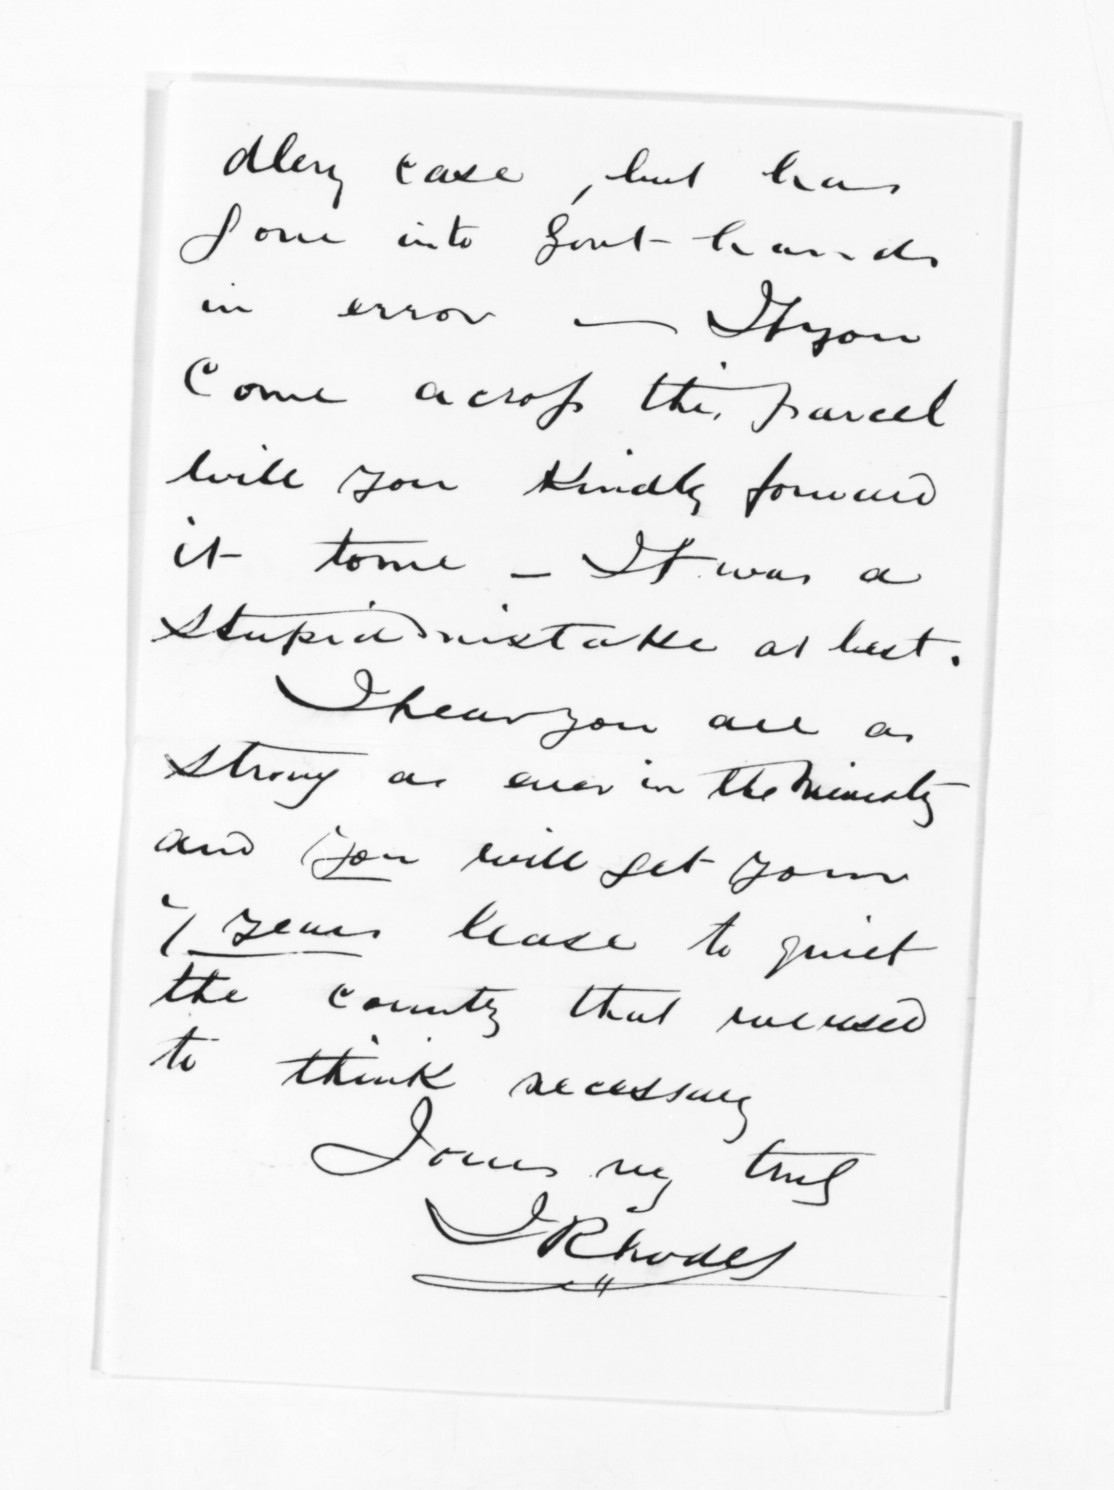 dlery case, but has
gone into Govt hands
in error — If you
Come across this parcel
will you kindly forward
it to me — It was a
stupid mistake at best.
I hear you are as
strong as ever in the Ministry
and you will get your
7 years lease to quiet
the country that we used
to think necessary
Yours vy truly
J Rhodes